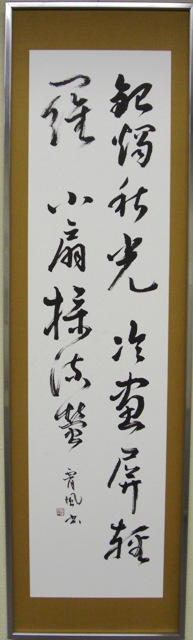 銀燭秋光冷畫屏輕
羅小扇撲流螢